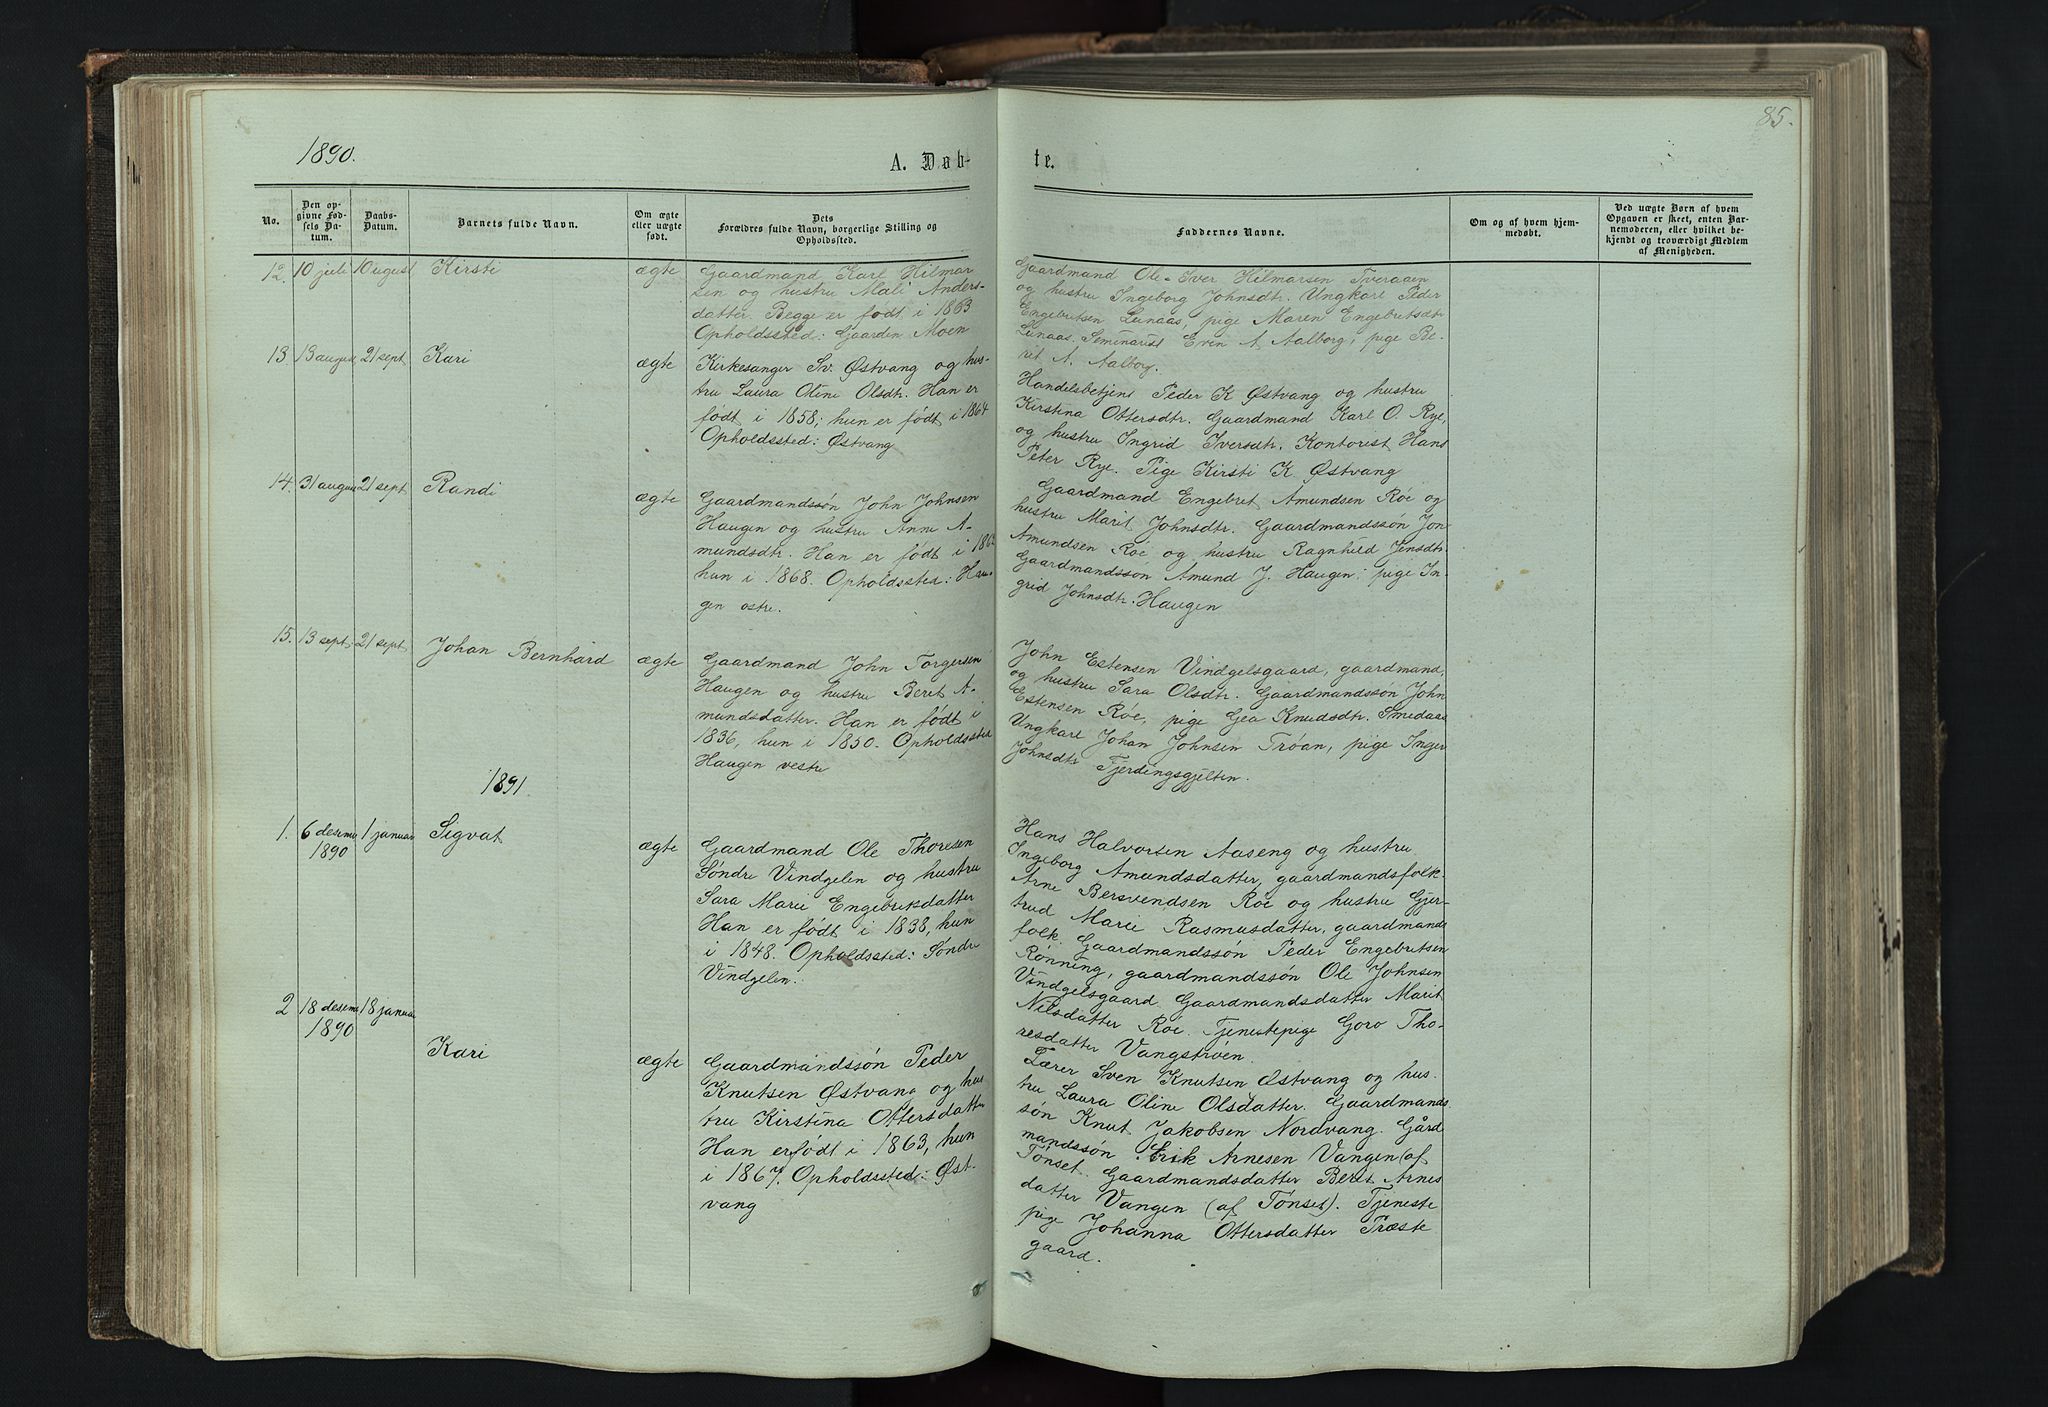 85.
1890.
A. Døb-
te.
No.
Den op-
givne Fød-
sels Da-
tum.
Daabs-
Datum.
Barnets fulde Navn.
Om ægte
eller uægte
født.
Dets
Forældres fulde Navn, borgerlige Stilling og
Opholdssted.
Faddernes Navne.
Om og af hvem hjem-
medøbt.
Ved uægte Børn af hvem
Opgaven er skeet, enten Bar-
nemoderen, eller hvilket be-
kjendt og troværdigt Medlem
af Menigheden.
12. 10 juli 10 august Kirsti ægte
Gaardmand Karl Hilmar-
sen og hustru Mali Anders-
datter. Begge er født i 1863
Opholdssted: Gaarden Moen
Gaardmand Ole-Iver Hilmarsen Tveraaen
og hustru Ingeborg Johnsdtr. Ungkarl Peder
Engebretsen Lunaas, pige Maren Engebretsdtr
Lunaas. Seminarist Even A. Aalborg; pige Be-
rit A. Aalborg.
13. 13 august 21 sept. Kari ægte
Kirkesanger Sv. Østvang og hus-
tru Laura Oline Olsdtr. Han er
født i 1858; hun er født i 1864
Opholdssted: Østvang
Handelsbetjent Peder K Østvang og hustru
Kirstina Ottersdtr. Gaardmand Karl O. Rye,
og hustru Ingrid Iversdtr. Kontorist Hans
Peter Rye. Pige Kirsti K. Østvang
14. 31 august 21 sept. Randi ægte
Gaardmandssøn John Johnsen
Haugen og hustru Anne A-
mundsdtr. Han er født i
hun i 1868. Opholdssted: Hau-
gen østre.
Gaardmand Engebret Amundsen Røe og
hustru Marit Johnsdtr. Gaardmandssøn Jon
Amundsen Røe og hustru Ragnhild Jensdtr.
Gaardmandssøn Amund J. Haugen; pige In-
grid Johnsdtr. Haugen
15. 13 sept. 21 sept. Johan Bernhard ægte
Gaardmand John Torgersen
Haugen og hustru Beret A-
mundsdatter. Han er født i
1836, hun i 1850. Opholdssted
Haugen vestre
John Estensen Vindgelsgaard, gaardmand,
og hustru Sara Olsdtr. Gaardmandssøn John
Estensen Røe, pige Gea Knudsdtr. Smedaas
Ungkarl Johan Johnsen Trøan, pige Inger
Johnsdtr Fjerdingsgjelten.
1891
1. 6 desemr 1 januar Sigvat ægte
1890
Gaardmand Ole Thoresen
Søndre Vindgelen og hustru
Sara Marie Engebriksdatter
Han er født i 1838, hun
i 1848. Opholdssted: Søndre
Vindgelen.
Hans Halvorsen Aaseng og hustru
Ingeborg Amundsdatter, gaardmandsfolk.
Arne Bersvendsen Røe og hustru Gjer-
trud Marie Rasmusdatter, gaardmands
folk. Gaardmandssøn Peder Engebretsen
Rønning, gaardmandssøn Ole Johnsen
Vindgelsgaard. Gaardmandsdatter Marit
Nilsdatter Røe. Tjenestepige Goro Tho-
resdatter Vangstrøen.
2 18 desemr 18 januar Kari ægte
1890
Gaardmandssøn Peder
Knutsen Østvang og hus
tru Kirstina Ottersdatter
Han er født i 1863, hun
i 1867. Opholdssted: Øst-
vang
Lærer Sven Knutsen Østvang og hus-
tru Laura Oline Olsdatter. Gaardmands
søn Knut Jakobsen Nordvang. Gård
mandssøn Erik Arnesen Vangen (af
Tønset. Gaardmandsdatter Berit Arnes
datter Vangen (af Tønset). Tjeneste
pige Johanna Ottersdatter Træste
gaard.